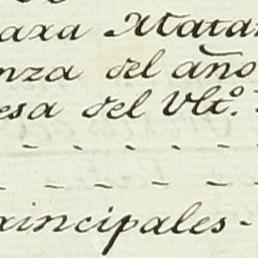 axa Mata
nza del año
esa del Vlt.º
- - - - - -
- - - - - -
xincipales -